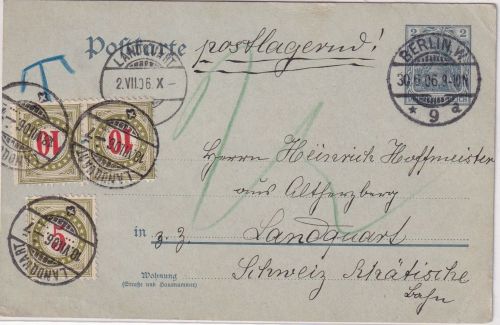 Postkarte
postlagernd!
LANDQUART
2.VII.06.X-
BERLIN.W.
30.6.06.9-10N.
* 9 a
2
2
T
10
10
5
LANDQUART
LANDQUART
LANDQUART
Herrn Heinrich Hoffmeister
aus Altherzberg
in z. Z. Landquart
Schweiz Rhätische
Bahn
Wohnung
(Straße und Hausnummer)